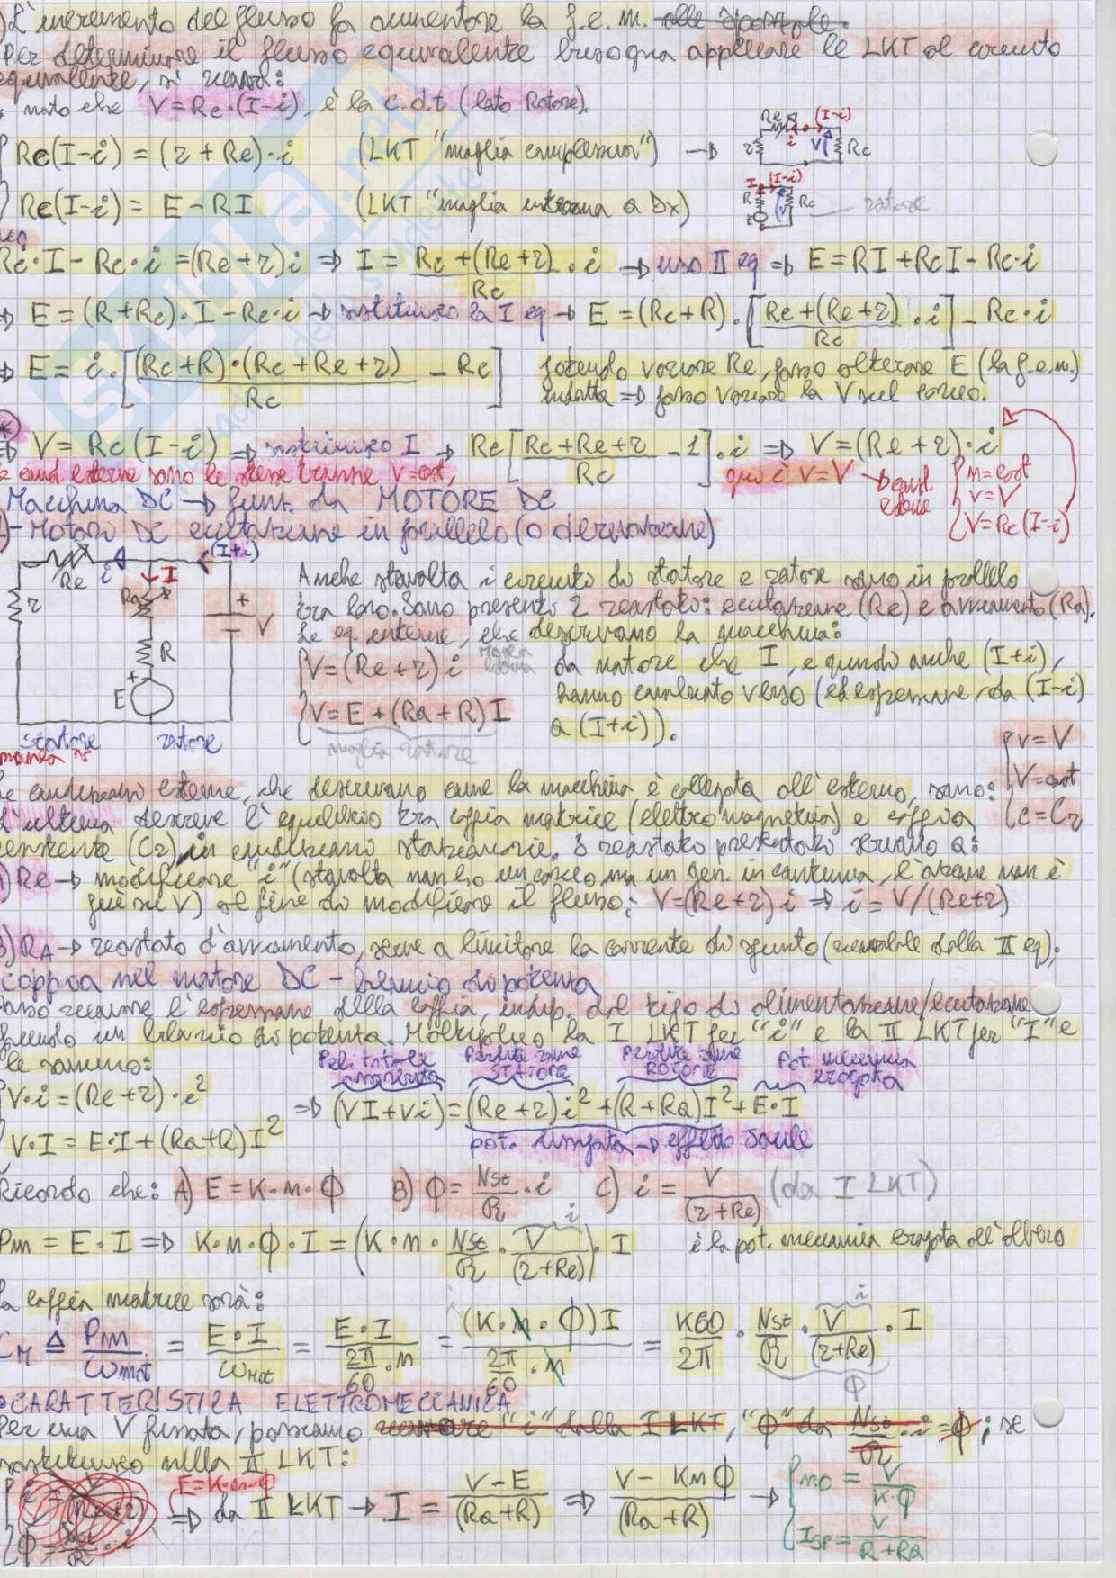 L'incremento del flusso fa aumentare la f.e.m.
Per determinare il flusso equivalente bisogna applicare le LKT al circuito
equivalente, si ricava:
noto che V=Rc·(I-i), è la c.d.t (lato Rotore).
Rc(I-i) = (r+Re)·i (LKT "maglia complessiva") →
Rc(I-i) = E-RI (LKT "maglia esterna a Dx")
rotore
Rc·I - Rc·i = (Re+r)i ⇒ I = Rc+(Re+r)/Rc · i → uso II eq ⇒ E = RI+RcI-Rc·i
⇒ E = (R+Rc)·I-Rc·i → sostituisco la I eq → E = (Rc+R)·[Rc+(Re+r)/Rc · i] - Rc·i
⇒ E = i·[(Rc+R)·(Rc+Re+r)/Rc - Rc] potendo variare Re, posso alterare E (la f.e.m.)
infatti ⇒ posso variare la V sul carico.
⇒ V = Rc(I-i) ⇒ sostituisco I ⇒ Rc[Rc+Re+r/Rc - 1]·i ⇒ V=(Re+r)·i
cond esterne sono le stesse tranne V=cost, qui è v=V → cond esterne { n=cost
v=V
V=Rc(I-i)
Macchina DC → funz. da MOTORE DC
- Motori DC eccitazione in parallelo (o derivazione)
Re i (I+i)
I
r Ra
+ V
R
+
E
statore rotore
Anche stavolta i circuiti di statore e rotore sono in parallelo
tra loro. Sono presenti 2 reostati: eccitazione (Re) e avviamento (Ra).
Le eq. interne, che descrivono la macchina:
V=(Re+r)i
V=E+(Ra+R)I
maglia rotore
da notare che I, e quindi anche (I+i),
hanno cambiato verso (ed espressione, da (I-i)
a (I+i)).
v=V
V=cost
C=Cr
Le condizioni esterne, che descrivono come la macchina è collegata all'esterno, sono:
L'ultima descrive l'equilibrio tra coppia motrice (elettromagnetica) e coppia
resistente (Cr) in condizioni stazionarie. I reostati presentati servono a:
A) Re → modificare "i" (stavolta non ho un carico, ma un gen. in continua, l'azione non è
più su V) al fine di modificare il flusso: V=(Re+r)i ⇒ i=V/(Re+r)
B) RA → reostato d'avviamento, serve a limitare la corrente di spunto (ricavabile dalla II eq).
coppia nel motore DC - bilancio di potenza
Posso ricavare l'espressione della coppia, indip. dal tipo di alimentazione/eccitazione
facendo un bilancio di potenza. Moltiplico la I LKT per "i" e la II LKT per "I" e
le sommo:
Pot. totale assorbita Perdite rame STATORE Perdite rame ROTORE Pot. meccanica erogata
V·i=(Re+r)·i²
⇒ (VI+Vi)=(Re+r)i²+(R+Ra)I²+E·I
V·I=E·I+(Ra+R)I²
pot. dissipata → effetto Joule
Ricordo che: A) E=K·n·ϕ B) ϕ=Nst/ℛ · i C) i=V/(r+Re) (da I LKT)
Pm=E·I ⇒ K·n·ϕ·I=(K·n·Nst/ℛ · V/(r+Re))·I è la pot. meccanica erogata all'albero
i
La coppia motrice sarà:
CM ≜ Pm/ωmot = E·I/ωMot = E·I/(2π/60 · n) = (K·n·ϕ)I/(2π/60 · n) = K60/2π · Nst/ℛ · V/(r+Re) · I
i
ϕ
CARATTERISTICA ELETTROMECCANICA
Per una V fissata, possiamo ricavare "i" dalla I LKT, "ϕ" da Nst/ℛ · i=ϕ; se
sostituisco nella II LKT:
E=K·n·ϕ
⇒ da II LKT → I = V-E/(Ra+R) ⇒ V-Knϕ/(Ra+R) → { n0 = V/K·ϕ
ISP = V/R+Ra